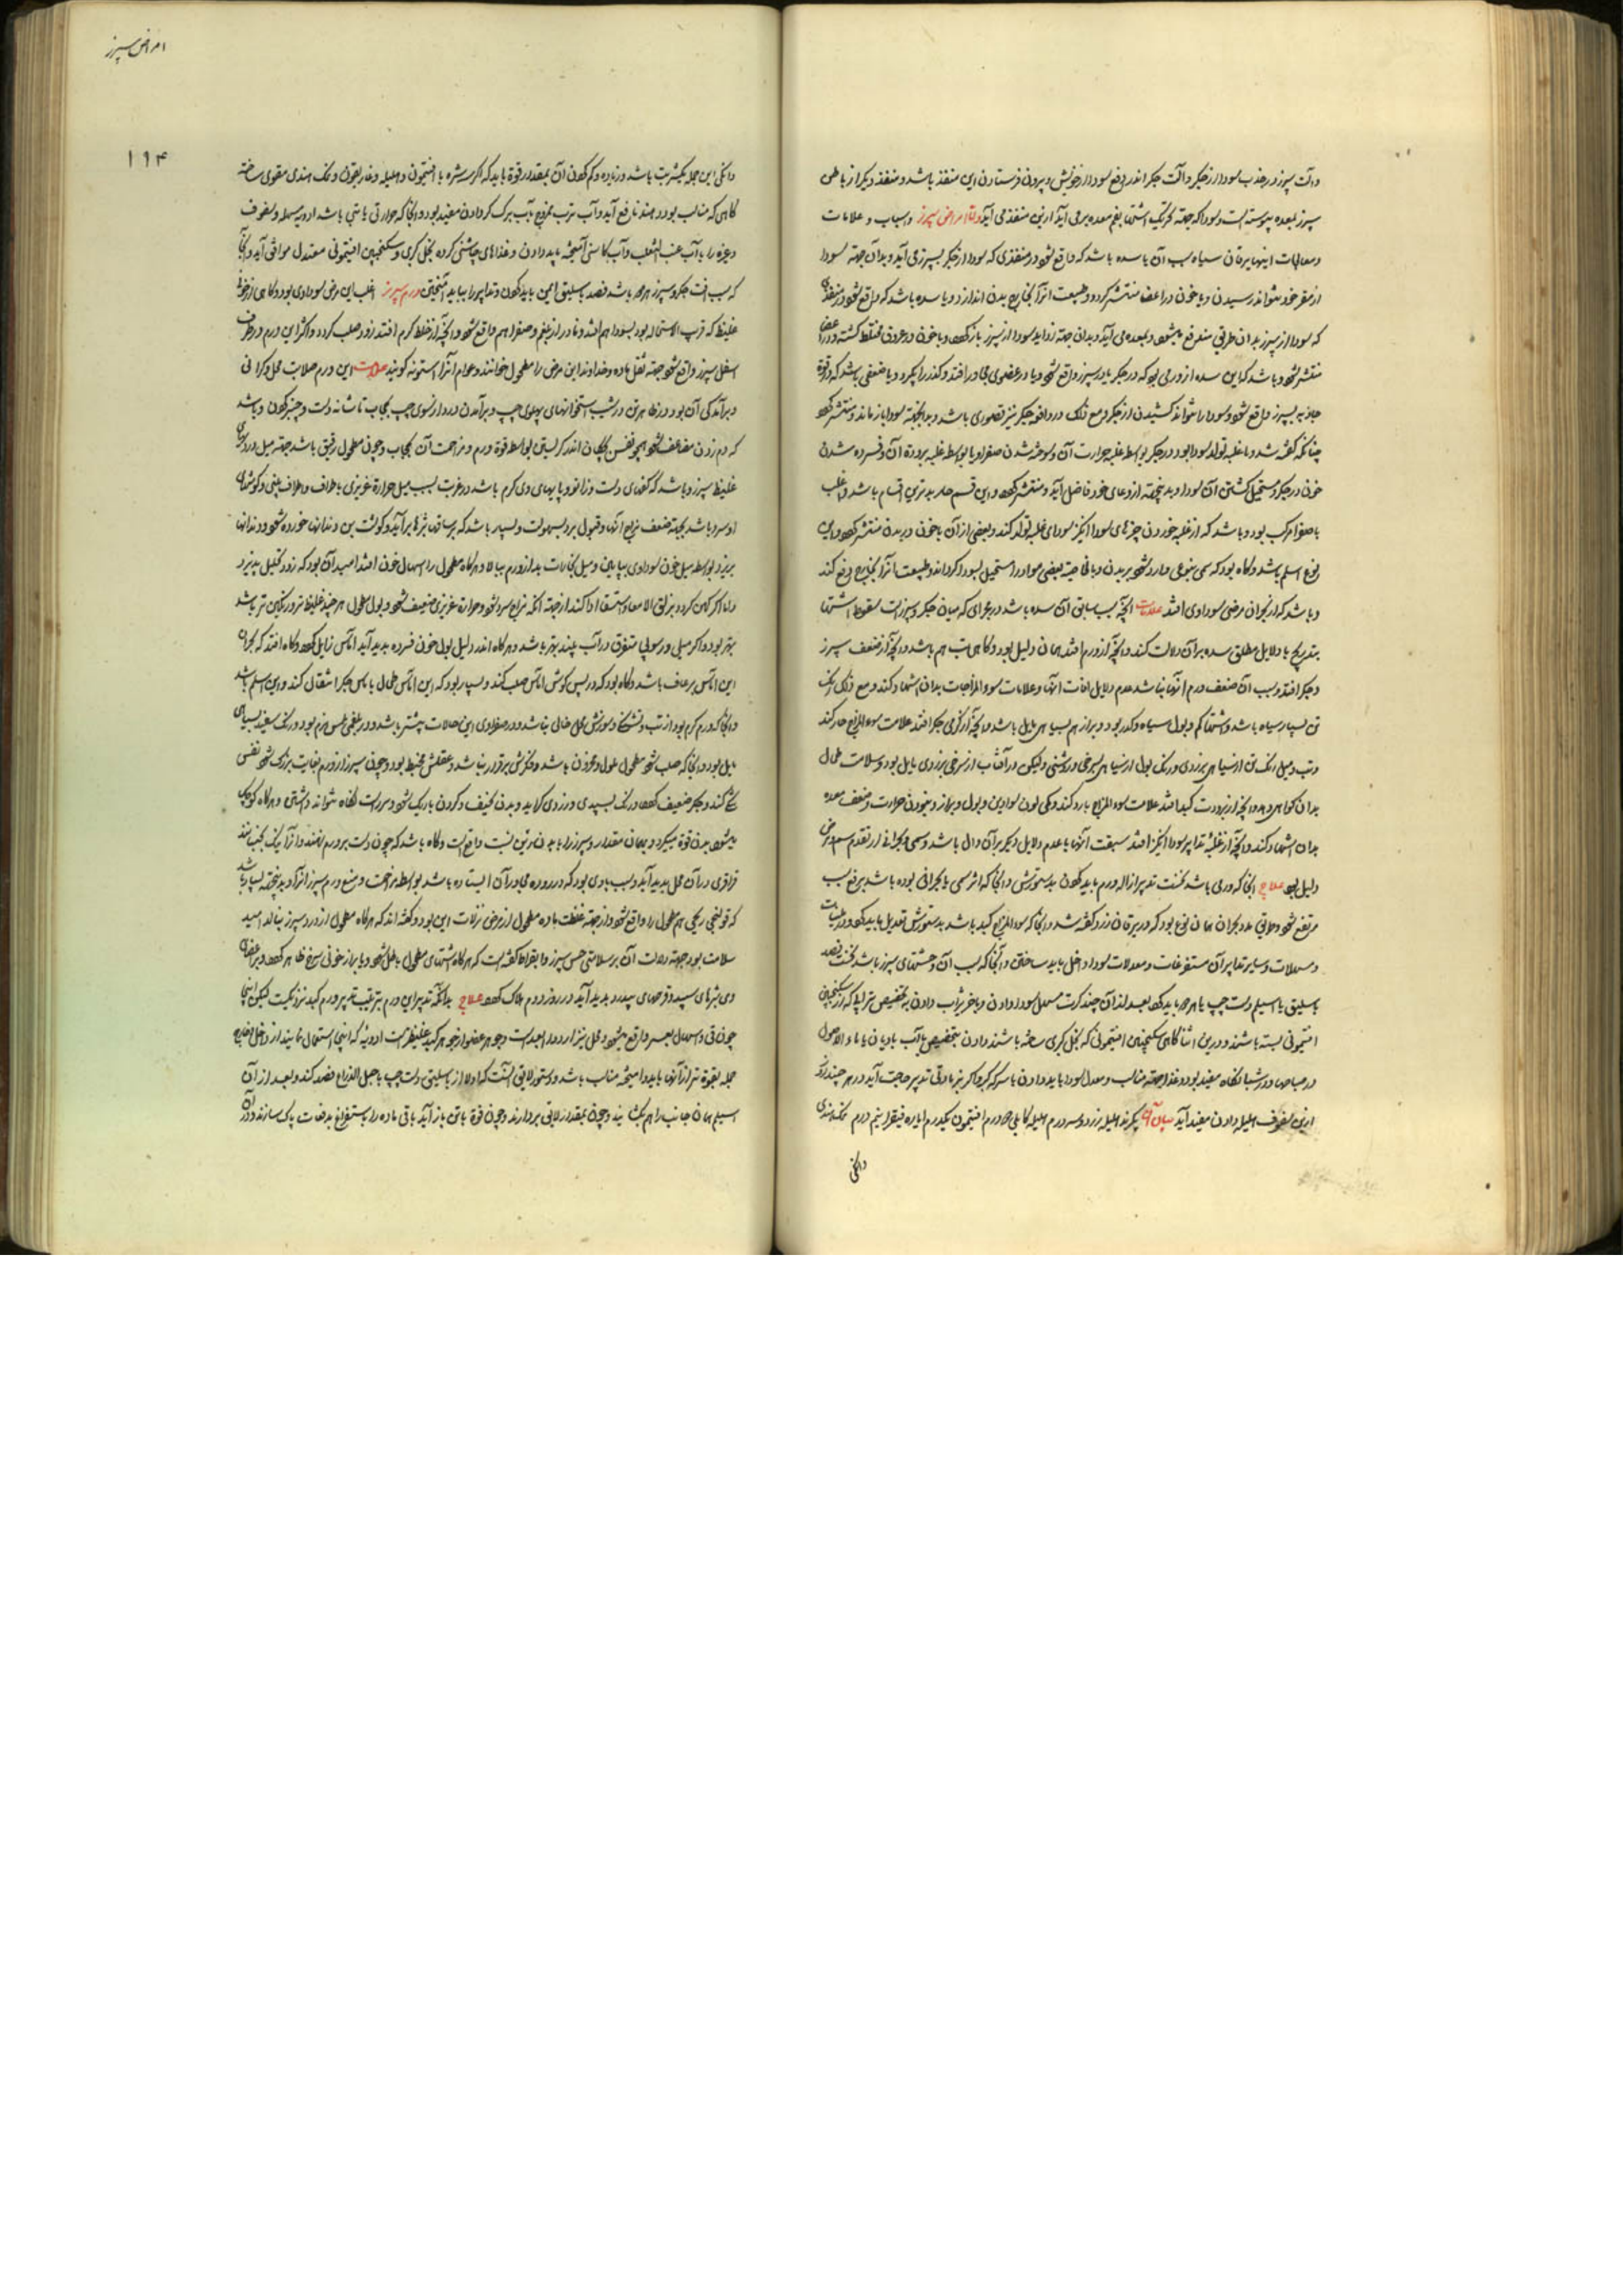 امراض سپرز
۱۹۴
وآلت سپرز در جذب سودا از جکر وآلت جکر اندر دفع سودا از خویش و بیرون فرستادن این منفذ باشد و منفذ دیکر از باطن
سپرز بمعده پیوسته است و سودا که جهة تحریک اشتها بفم معده برمی آید ازین منفذ می آید واما امراض سپرز واسباب و علامات
ومعالجات اینها یرقان سیاه سبب آن یا سده باشد که واقع شود در منفذی که سودا از جکر بسپرز می آید و بدان جهة سودا
از مقر خود نتواند رسیدن و با خون در اعضا منتشر کردد وطبیعت آنرا بخارج بدن اندازد و یا سده باشد که واقع شود در منفذی
که سودا از سپرز بدان طریق مندفع میشود و بمعده می آید و بدان جهة زواید سودا از سپرز باز کردد و با خون در عروق مختلط کشته و در اعضا
منتشر شود و باشد که این سده از ورمی بود که در جکر یا در سپرز واقع شود و یا در عضوی مجاور افتد و کذر را بکیرد و یا ضعفی باشد که در قوة
جاذبه سپرز واقع شود و سودا را نتواند کشیدن از جکر و مع ذلک در دافعه جکر نیز قصوری باشد و بدانجهة سودا باز ماند و منتشر کردد
چنانکه کفته شد و یا غلبه تولد سودا بود در جکر بواسطه غلبه حرارت آن و سوخته شدن صفرا و یا بواسطه غلبه برودة آن و فسرده شدن
خون در جکر و مستحیل کشتن آن بسودا و بدینجهة از وعای خود فاضل آید و منتشر کردد و این قسم حار بدترین اقسام باشد و اغلب
با صفرا مرکب بود و باشد که از غلبه خوردن چیزهای سودا انکیز سودای غلبه تولد کند و بعضی از آن با خون در بدن منتشر کردد و این
نوع اسلم باشد و کاه بود که سمی بنوعی وارد شود بر بدن و بالخاصیة بعضی مواد را مستحیل بسودا کرداند و طبیعت آنرا بخارج دفع کند
و باشد که از بحران مرضی سوداوی افتد علامات آنچه سبب سابق آن سده باشد در مجرای که میان جکر و سپرز است سقوط اشتها
بتدریج با دلایل مطلق سده بر آن دلالت کند و آنچه از ورم افتد همان دلیل بود و کاهی تب هم باشد و آنچه از ضعف سپرز
و جکر افتد و سبب آن ضعف ورم آنها نباشد عدم دلایل آفات آنها و علامات سوء المزاجات بدان اشعار کند و مع ذلک رنک
تن بسیار سیاه باشد و اشتها کم و بول سیاه و کدر بود و براز هم بسیاهی مایل باشد و آنچه از کرمی جکر افتد علامت سوء المزاج حار کند
و تب و میل رنک تن از سیاهی بزردی و رنک بول از سیاهی بسرخی و روشنی ولیکن در آفتاب از سرخی بزردی مایل بود و سلامت طحال
بدان کواهی دهد و آنچه از برودت کبد افتد علامت سوء المزاج بارد کند و کمی لون سوادین و بول و براز و نبودن حرارت و ضعف معده
بدان اشعار کند و آنچه از غلبه تدابیر سودا انکیز افتد سبقت آنها با عدم دلایل دیکر بر آن دال باشد و سمی و بحرانی از تقدم سم و مرض
دلیل بود علاج آنجا که ورمی باشد نخست تدبیر ازاله ورم باید کردن بدستورش و آنجا که اثر سمی یا بحرانی بوده باشد برفع سبب
مرتفع شود و معاونتی مدد بحران همان نوع بود که در یرقان زرد کفته شد و آنجا که سوء المزاج کبد باشد بدستورش تعدیل باید کرد و مرطبات
و مسهلات و سایر تدابیر آن مستفرغات و معدلات سودا داخل باید ساختن و آنجا که سبب آن وحشتهای سپرز باشد نخست فصد
باسلیق یا اسیلم دست چپ یا هر دو باید کرد بعد از آن چند کرت مسهل سودا دادن و بآخر شراب دادن بتخصیص شرابی که از سکنجبین
افتیمونی بسته باشند و درین اثنا کاهی سکنجبین افتیمونی که بخل کبری ساخته باشند دادن بتخصیص با آب بادیان یا ماء الاصول
در صباحها و در شبانکاه مفید بود و غذاها جهة مناسب و معدل سودا باید دادن با سرکه کبر و اکر نیز باقی تدبیر حاجت آید در هر چند روز
ازین سفوف هلیله دادن مفید آید بیان آن بکیرند هلیله زرد سه درم هلیله کابلی چهار درم افتیمون یکدرم ایاره فیقرا نیم درم نمک هندی
دانکی
دانکی این جمله یکشربت باشد و زیاده و کم کردن آن بمقدار قوة باید که اکر سرشره با افتیمون و هلیله و غاریقون و نمک هندی مقوی ساخته
کاهی که مناسب بود دهند نافع آید و آب ترب ممزوج بآب برک کر دادن مفید بود و آنجا که حرارتی یا تبی باشد ادویه مسهله و سفوف
وغیره را بآب عنب الثعلب و آب کاسنی آمیخته باید دادن و غذاهای چاشنی کرده بخل کبری و سکنجبین افتیمونی معتدل موافق آید و آنجا
که سبب آفت جکر و سپرز هر دو باشد فصد باسلیق ایمن باید کردن و تدابیر را بباید آمیختن ورم سپرز اغلب این مرض سوداوی بود و کاهی از خون
غلیظ که قریب الاستحاله بود بسودا هم افتد و نادر از بلغم و صفرا هم واقع شود و آنچه از خلط کرم افتد زود صلب کردد و اکثر این ورم در طرف
اسفل سپرز واقع شود جهة ثقل ماده و خداوند این مرض را مطحول خوانند و عوام آنرا استونه کویند علامت این ورم صلابت محل و کرانی
و برآمدکی آن بود در ظاهر تن در شیب استخوانهای پهلوی چپ و برآمدن درد از سوی چپ بحجاب تا شانه دست و چنبر کردن و باشد
که دم زدن مضاعف شود همچو نفس کودکان اندر کریستن بواسطه قوة ورم و مزاحمت آن بحجاب و چون مطحول رقیق باشد جهة میل درد بسوی
غلیظ سپرز و باشد که کفهای دست و زانو و پایهای وی کرم باشد در غربت بسبب میل حرارة غریزی باطراف و اطراف بینی و کوشهای
او سرد باشد بجهة ضعف مزاج آنها و قبول برد بسهولت و بسیار باشد که بر ساقها بثرها برآید و کوشت بن دندانها خورده شود و دندانها
بریزد بواسطه میل خون سوداوی بپایین و میل بخارات بد از ورم ببالا و هرکاه مطحول را اسهال خون افتد امید آن بود که زود تحلیل پذیرد
واما اکر کهن کردد بزلق الامعا و استسقا ادا کند از جهة آنکه مزاج سرد شود و حرارة غریزی ضعیف شود و بول مطحول هر چند غلیظ تر و رنکین تر باشد
بهتر بود و اکر میلی و رسوبی متفرق در آب بیند بهتر باشد و هرکاه اندر دلیل بول خون فسرده پدید آید آماس زایل کردد و کاه افتد که بحران
این آماس برعاف باشد و کاه بود که در پس کوش آماس صلب کند و بسیار بود که این آماس طحال بآماس جکر انتقال کند و این اسلم باشد
وآنجا که ورم کرم بود از تب و تشنکی و سوزش محل خالی نباشد و در صفراوی این حالات بیشتر باشد و در بلغمی لمس نرم بود و رنک سفید بسیاهی
مایل بود و آنجا که صلب شود مطحول ملول و محزون باشد و فکرش برقرار نباشد و عقلش مخبط بود و چون سپرز از ورم بغایت بزرک شود نفس
تنک کند و جکر ضعیف کردد و رنک بسپیدی و زردی کراید و بدن نحیف و کردن باریک شود و سر راست نکاه نتواند داشتن و هرکاه کوچک
میشود بدن قوة میکیرد و بهمان مقدار و سپرز را با بدن ترتیبی است واقع است و کاه باشد که چون دست بر ورم نهند و آنرا نیک بجنبانند
قراقری در آن محل پدید آید و سبب بادی بود که در روده مجاور آن ایستاده باشد بواسطه مزاحمت و منع ورم سپرز آنرا و بدینجهة بسیار باشد
که قولنجی ریحی هم مطحول را واقع شود و از جهة غلظت ماده مطحول از مرض نزلات ایمن بود و کفته اند که هرکاه مطحول از درد سپرز بنالد امید
سلامت بود جهة دلالت آن بر سلامتی حس سپرز و بقراط کفته است که هرکاه اشتهای مطحول باطل شود و یا براز خونی سرخ ظاهر کردد و بر اعضای
وی بثرهای سپید و قرصهای سپید پدید آید در روز دوم هلاک کردد علاج بدانکه تدبیر این ورم بترتیب تدبیر ورم کبد نزدیکست لیکن اینجا
چون قی و اسهال بعسر واقع میشود و محل نیز از ورود ابعد است و جوهر عضو از جوهر کبد غلیظ تر است ادویه که اینجا استعمال نمایند از داخل و خارج
جمله بقوة تر از آنها باید و آمیخته مناسب باشد و دستور لایق آنست که اولا از باسلیق دست چپ یا حبل الذراع فصد کنند و بعد از آن
اسیلم همان جانب را هم بکشایند و چون بمقدار لایق بردارند و چون قوة باقی باز آید باقی ماده را باستفراغ بدفعات پاک سازند و در آن